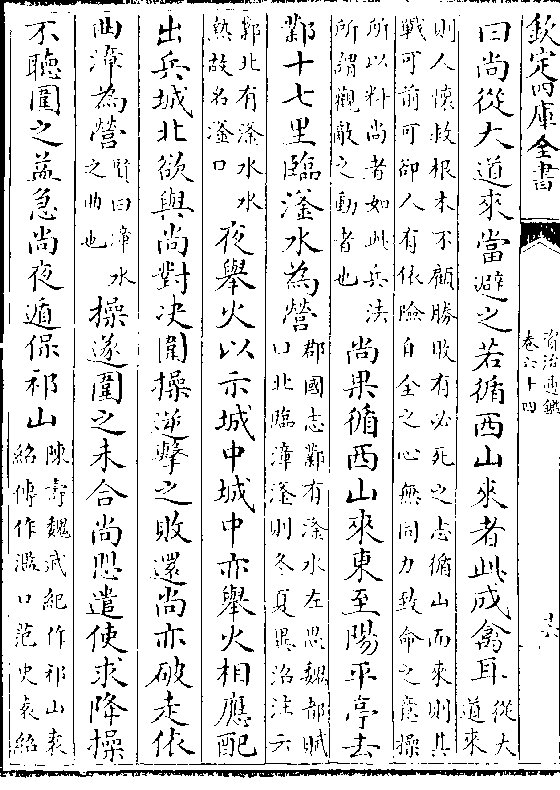 欽定四庫全書
資治通鑑
卷六十四
曰尚從大道來當避之若循西山來者此成禽耳從大
道來
則人懷救根本不顧勝敗有必死之志循山而來則其
戰可前可卻人有依險自全之心無同力致命之意操
所以料尚者如此兵法
所謂觀敵之動者也
尚果循西山來東至陽平亭去
鄴十七里臨滏水為營
郡國志鄴有滏水左思魏都賦
口北臨漳滏則冬夏異沼注云
鄴北有滏水水
熱故名滏口
夜舉火以示城中城中亦舉火相應配
出兵城北欲與尚對決圍操逆擊之敗還尚亦破走依
曲漳為營
賢曰漳水
之曲也
操遂圍之未合尚恐遣使求降操
不聽圍之益急尚夜遁保祁山
陳壽魏武紀作祁山袁
紹傳作濫口范史袁紹